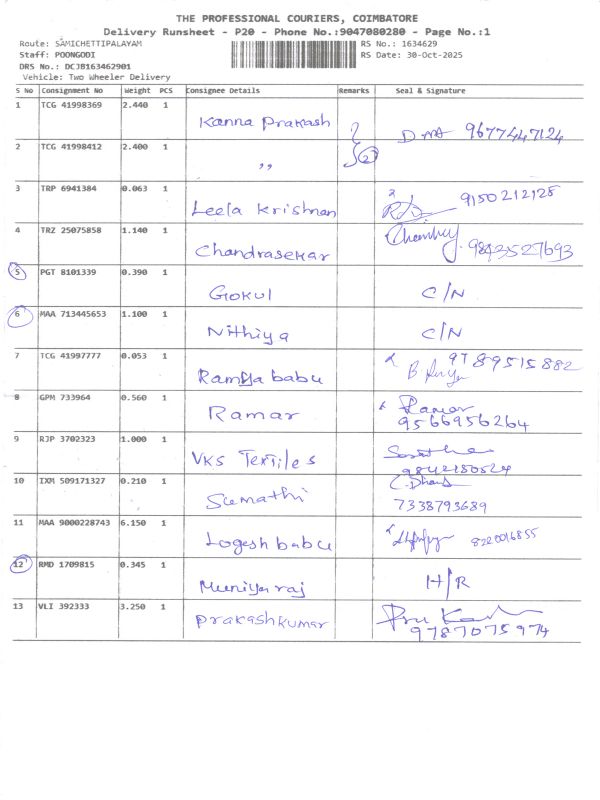 THE PROFESSIONAL COURIERS, COIMBATORE
Delivery Runsheet - P20 - Phone No.:9047080280 - Page No.:1
Route: SAMICHETTIPALAYAM
RS No.: 1634629
Staff: POONGODI
RS Date: 30-Oct-2025
DRS No.: DCJB163462901
Vehicle: Two Wheeler Delivery
S No Consignment No Weight PCS Consignee Details Remarks Seal & Signature
1 TCG 41998369 2.440 1 Kanna Prakash 9677447124
2 TCG 41998412 2.400 1 ,, 2
3 TRP 6941384 0.063 1 Leela Krishnan 9150212128
4 TRZ 25075858 1.140 1 Chandrasekar 9843527693
5 PGT 8101339 0.390 1 Gokul C/N
6 MAA 713445653 1.100 1 Nithiya C/N
7 TCG 41997777 0.053 1 Ramya babu 9789515882
8 GPM 733964 0.560 1 Ramar Ramar 9566956264
9 RJP 3702323 1.000 1 VKS Textiles 9842150524
10 IXM 509171327 0.210 1 Sumathi 7338793689
11 MAA 9000228743 6.150 1 Logesh babu 8220016855
12 RMD 1709815 0.345 1 Muniyaraj H/R
13 VLI 392333 3.250 1 Prakashkumar 9787075974